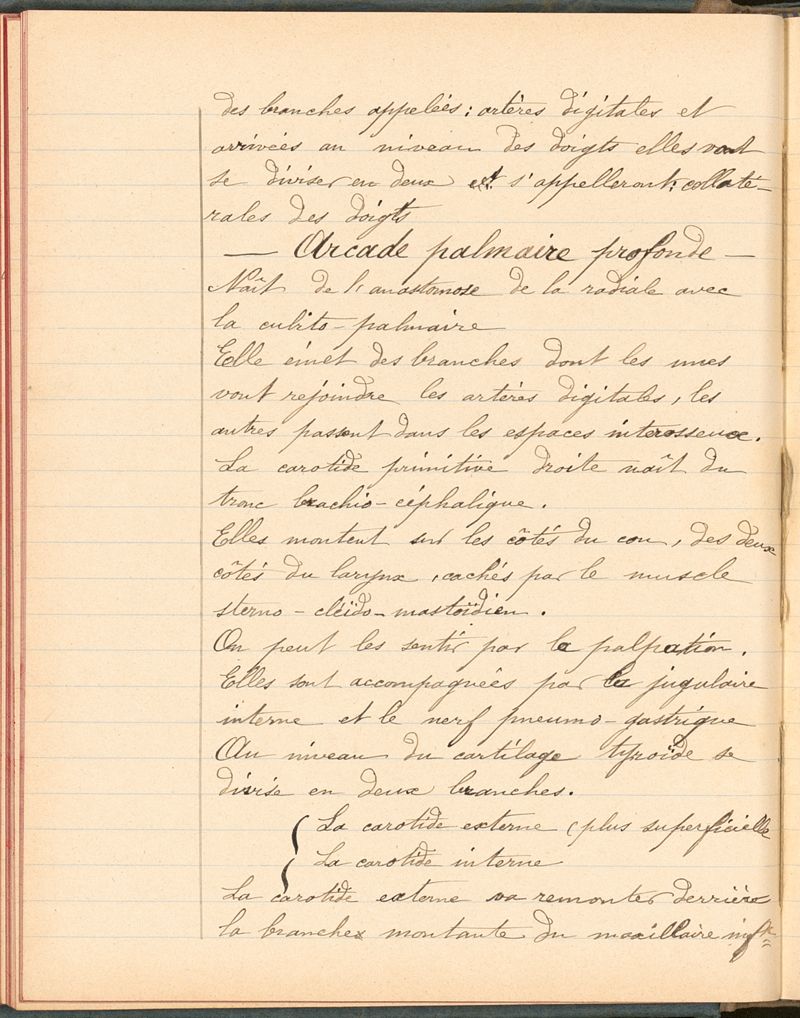 des branches appelées : artères digitales et
arrivées au niveau des doigts elles vont
se diviser en deux et s'appelleront : collaté-
rales des doigts
— Arcade palmaire profonde —
Naît de l'anastomose de la radiale avec
la cubito-palmaire
Elle émet des branches dont les unes
vont rejoindre les artères digitales, les
autres passent dans les espaces interosseux.
La carotide primitive droite naît du
tronc brachio-céphalique.
Elles montent sur les côtés du cou, des deux
côtés du larynx, cachés par le muscle
sterno-cléïdo-mastoïdien.
On peut les sentir par la palpation.
Elles sont accompagnées par la jugulaire
interne et le nerf pneumo-gastrique
Au niveau du cartilage tyroïde se
divise en deux branches.
La carotide externe (plus superficielle
La carotide interne
La carotide externe va remonter derrière
la branche montante du maxillaire infr